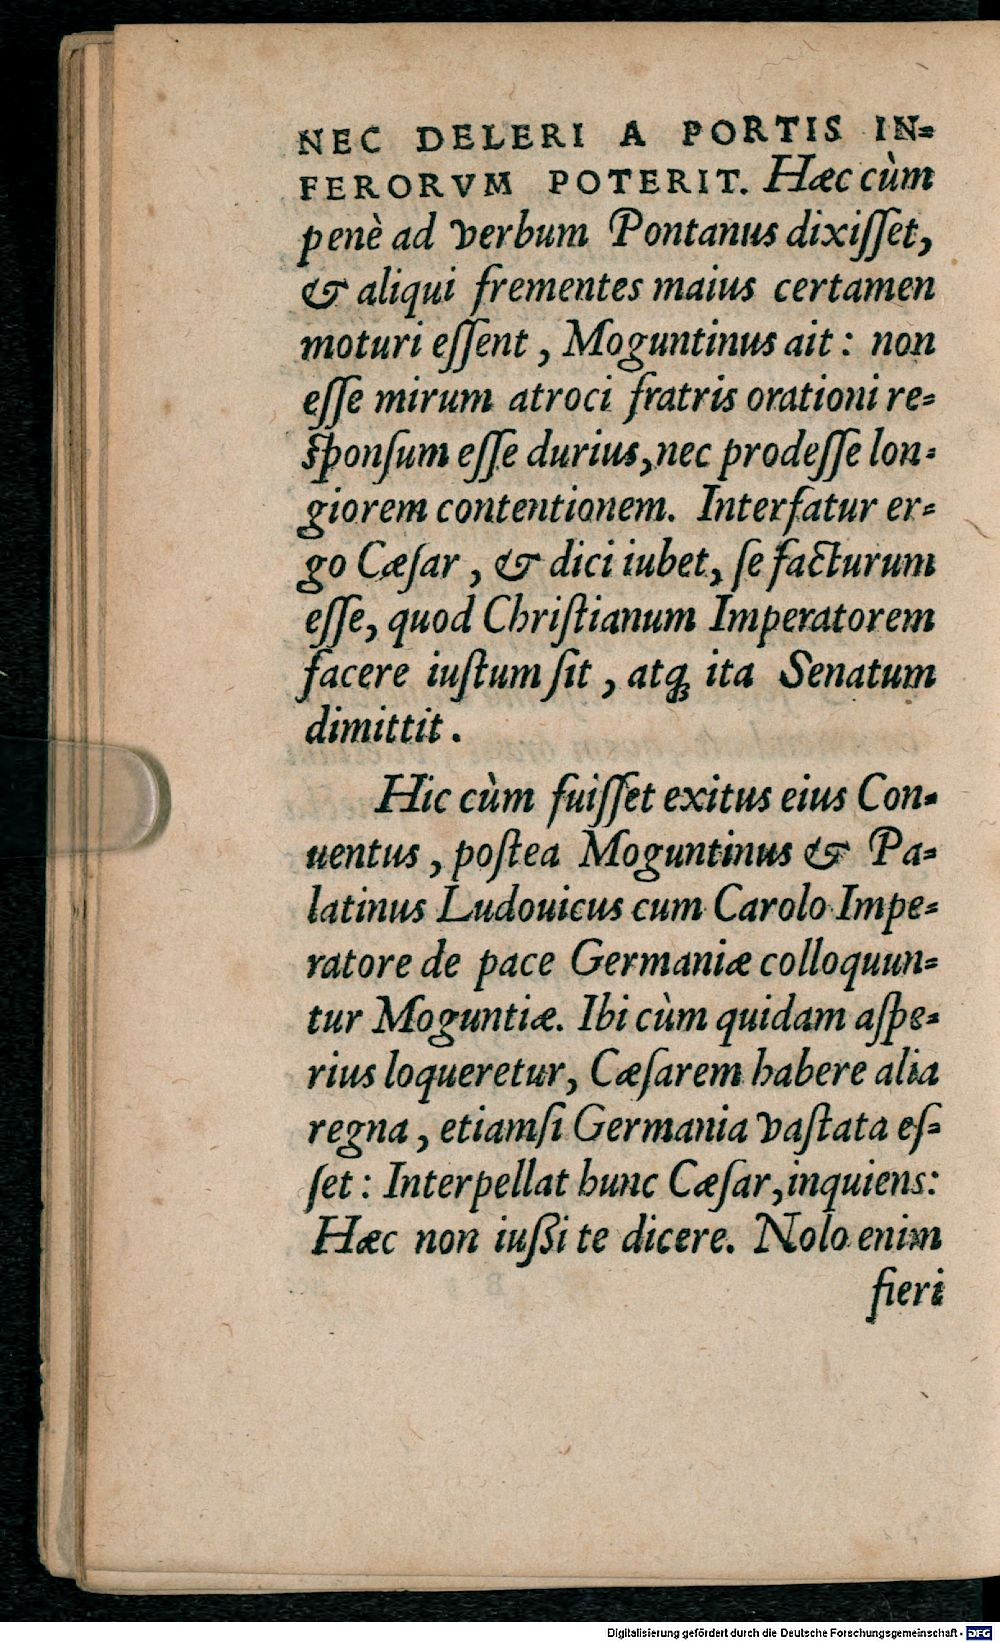 NEC DELERI A PORTIS IN-
FERORVM POTERIT. Hæc cùm
penè ad verbum Pontanus dixiſſet,
& aliqui frementes maius certamen
moturi eſſent, Moguntinus ait: non
eſſe mirum atroci fratris orationi re-
ſponſum eſſe durius, nec prodeſſe lon-
giorem contentionem. Interfatur er-
go Cæſar, & dici iubet, ſe facturum
eſſe, quod Chriſtianum Imperatorem
facere iuſtum ſit, atq; ita Senatum
dimittit.
Hic cùm fuiſſet exitus eius Con-
uentus, poſtea Moguntinus & Pa-
latinus Ludouicus cum Carolo Impe-
ratore de pace Germaniæ colloquun-
tur Moguntiæ. Ibi cùm quidam aſpe-
rius loqueretur, Cæſarem habere alia
regna, etiamſi Germania vaſtata eſ-
ſet: Interpellat hunc Cæſar, inquiens:
Hæc non iußi te dicere. Nolo enim
fieri
Digitalisierung gefördert durch die Deutsche Forschungsgemeinschaft - DFG